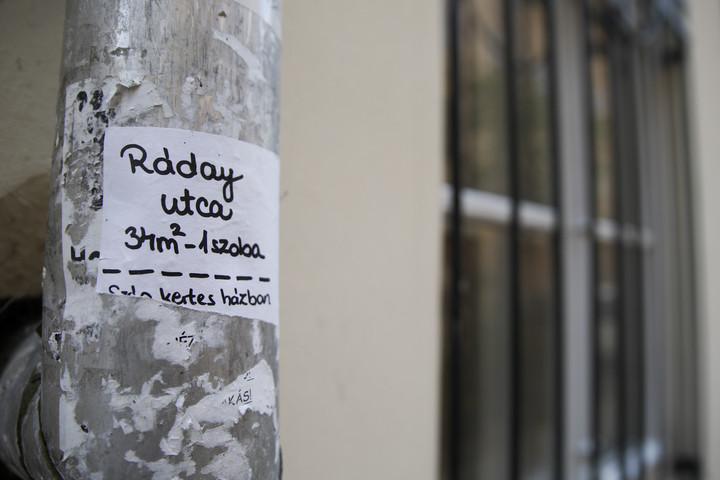 Ráday
utca
34m²-1szoba
kertes házban
KÁS!